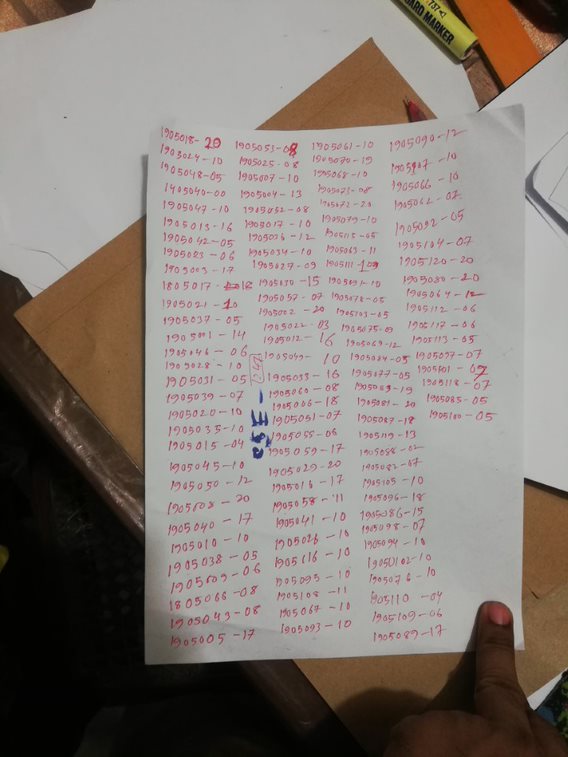 1905018-20
1903024-10
1905048-05
1405040-00
1905047-10
1905013-16
1905042-05
1905083-06
1905003-17
1805017-16
1905021-10
1905037-05
1905001-14
1905046-06
1905028-10
1905031-05
1905039-07
1905020-10
1905035-10
1905015-04
1905045-10
1905050-12
1905608-20
1905040-17
1905010-10
1905038-05
1905609-06
1805066-08
1905049-08
1905005-17
1905053-08
1905025-08
1905007-10
1905004-13
1905052-08
1905017-10
1905026-12
1905034-10
1905027-09
1905030-15
1905057-07
1905002-20
1905022-03
1905012-16
1905049-10
1905033-16
1905060-08
1905006-18
1905051-07
1905055-06
1905059-17
1905029-20
1905016-17
1905058-11
1905041-10
1905026-10
1905116-10
1905095-10
1905108-11
1905067-10
1905093-10
1905061-10
1905070-19
1905068-10
1905071-08
1905072-20
1905079-10
1905115-05
1905063-11
1905111-09
1905091-10
1905078-05
1905103-05
1905075-09
1905069-12
1905084-05
1905077-05
1905083-19
1905081-20
1905087-18
1905119-13
1905088-02
1905082-07
1905105-10
1905096-18
1905086-15
1905098-07
1905094-10
19050102-10
1905076-10
1905110-04
1905109-06
1905089-17
1905090-12
1905107-10
1905066-10
1905062-07
1905092-05
1905104-07
1905120-20
1905080-20
1905064-12
1905112-06
1905117-06
1905113-05
1905097-07
1905101-07
1905118-07
1905085-05
1905100-05